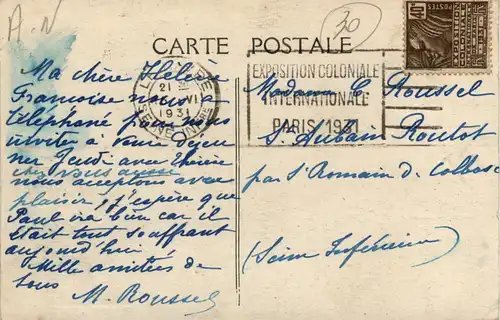 A-N
30
CARTE POSTALE
POSTES
21 VI
1931
SEINE INFRE
EXPOSITION COLONIALE
INTERNATIONALE
PARIS 1931
Ma chère Hélène
Françoise nous a
téléphoné pour nous
inviter à venir déjeu
ner Jeudi avec
chez vous aussi
nous acceptons avec
plaisir, j'espère que
Paul ira bien car il
était tout souffrant
aujourd'hui
Mille amitiés de
tous
M. Roussel
Madame C. Roussel
St Aubain Routot
par St Romain de Colbosc
(Seine Inférieure)